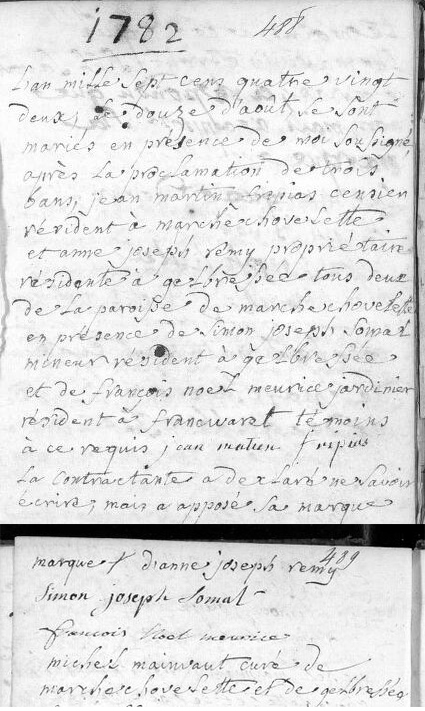 1782 488
Lan mille sept cens quatre vingt
deux, le douze d'août se sont
mariés en présence de moi soussigné,
après la proclamation de trois
bans, jean martin fripias censien
résident à marchechovelette
et anne joseph remy propriétaire
résidente à gelbressée tous deux
de la paroisse de marchechovelette
en présence de simon joseph somal
mineur résident à gelbressée
et de françois noel meurice jardinier
résident à francwaret témoins
à ce requis jean matin fripias
La contractante a declaré ne savoir
écrire, mais a apposé sa marque
489
marque + dianne joseph remy
Simon joseph Somal
francois Noel meurice
michel mainvaut curé de
marchechovelette et de gelbressée